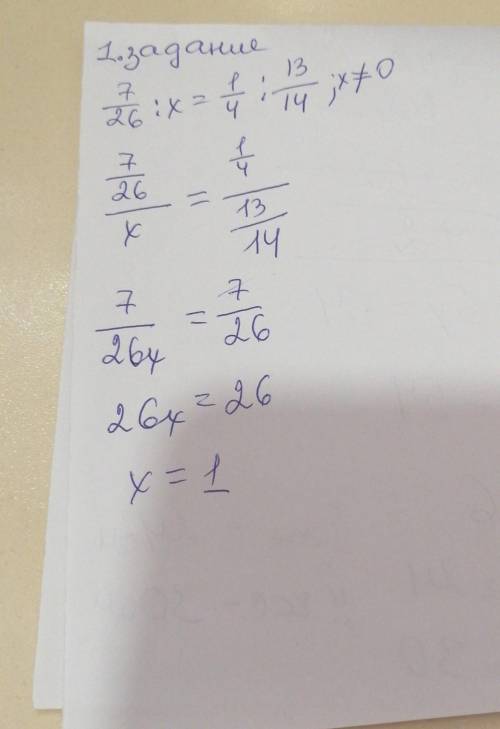 1. задание
7/26 : x = 1/4 : 13/14 ; x ≠ 0
7/26 / x = 1/4 / 13/14
7/26x = 7/26
26x = 26
x = 1